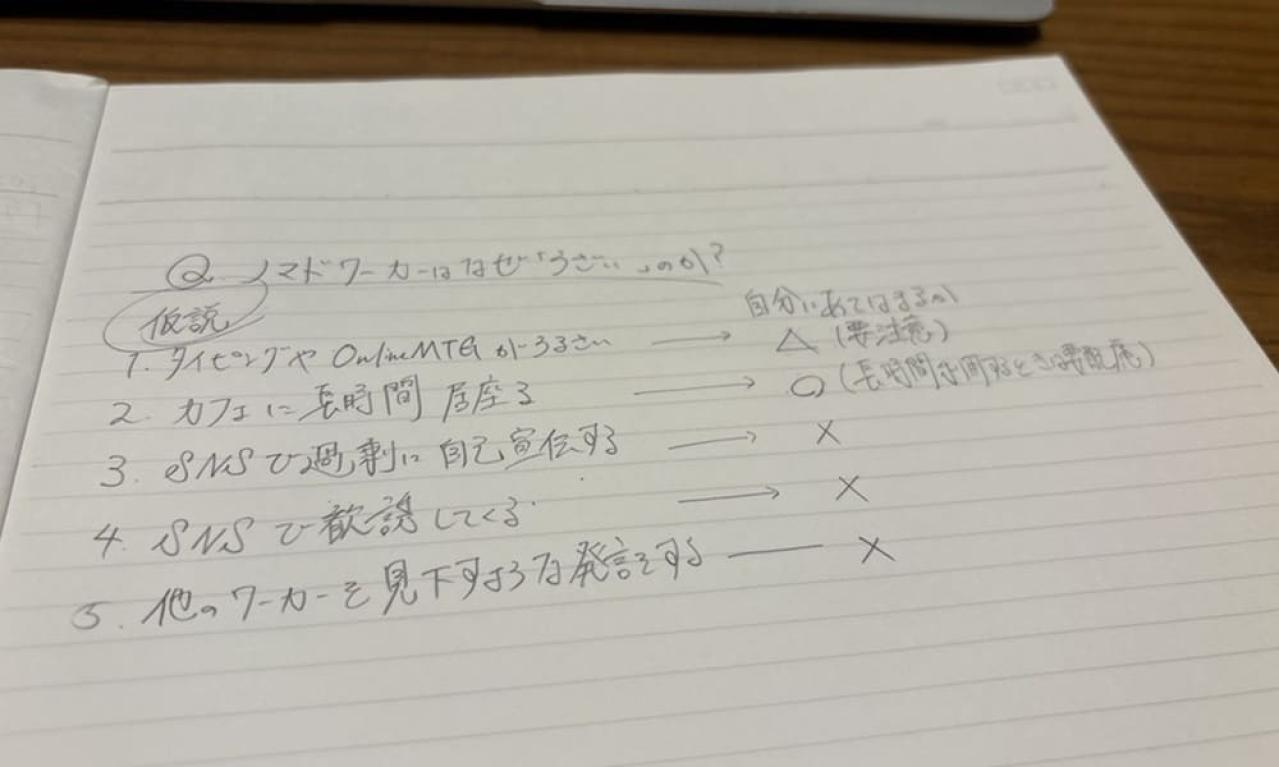 Q. ノマドワーカーはなぜ「うさい」のか?
仮説
自分にあてはまるか
1. タイピングや OnlineMTG がうるさい → △ (要注意)
2. カフェに長時間 居座る → ○ (長時間 利用するときは要配慮)
3. SNSで過剰に自己宣伝する → ×
4. SNSで歓誘してくる → ×
5. 他のワーカーを見下すような発言をする — ×